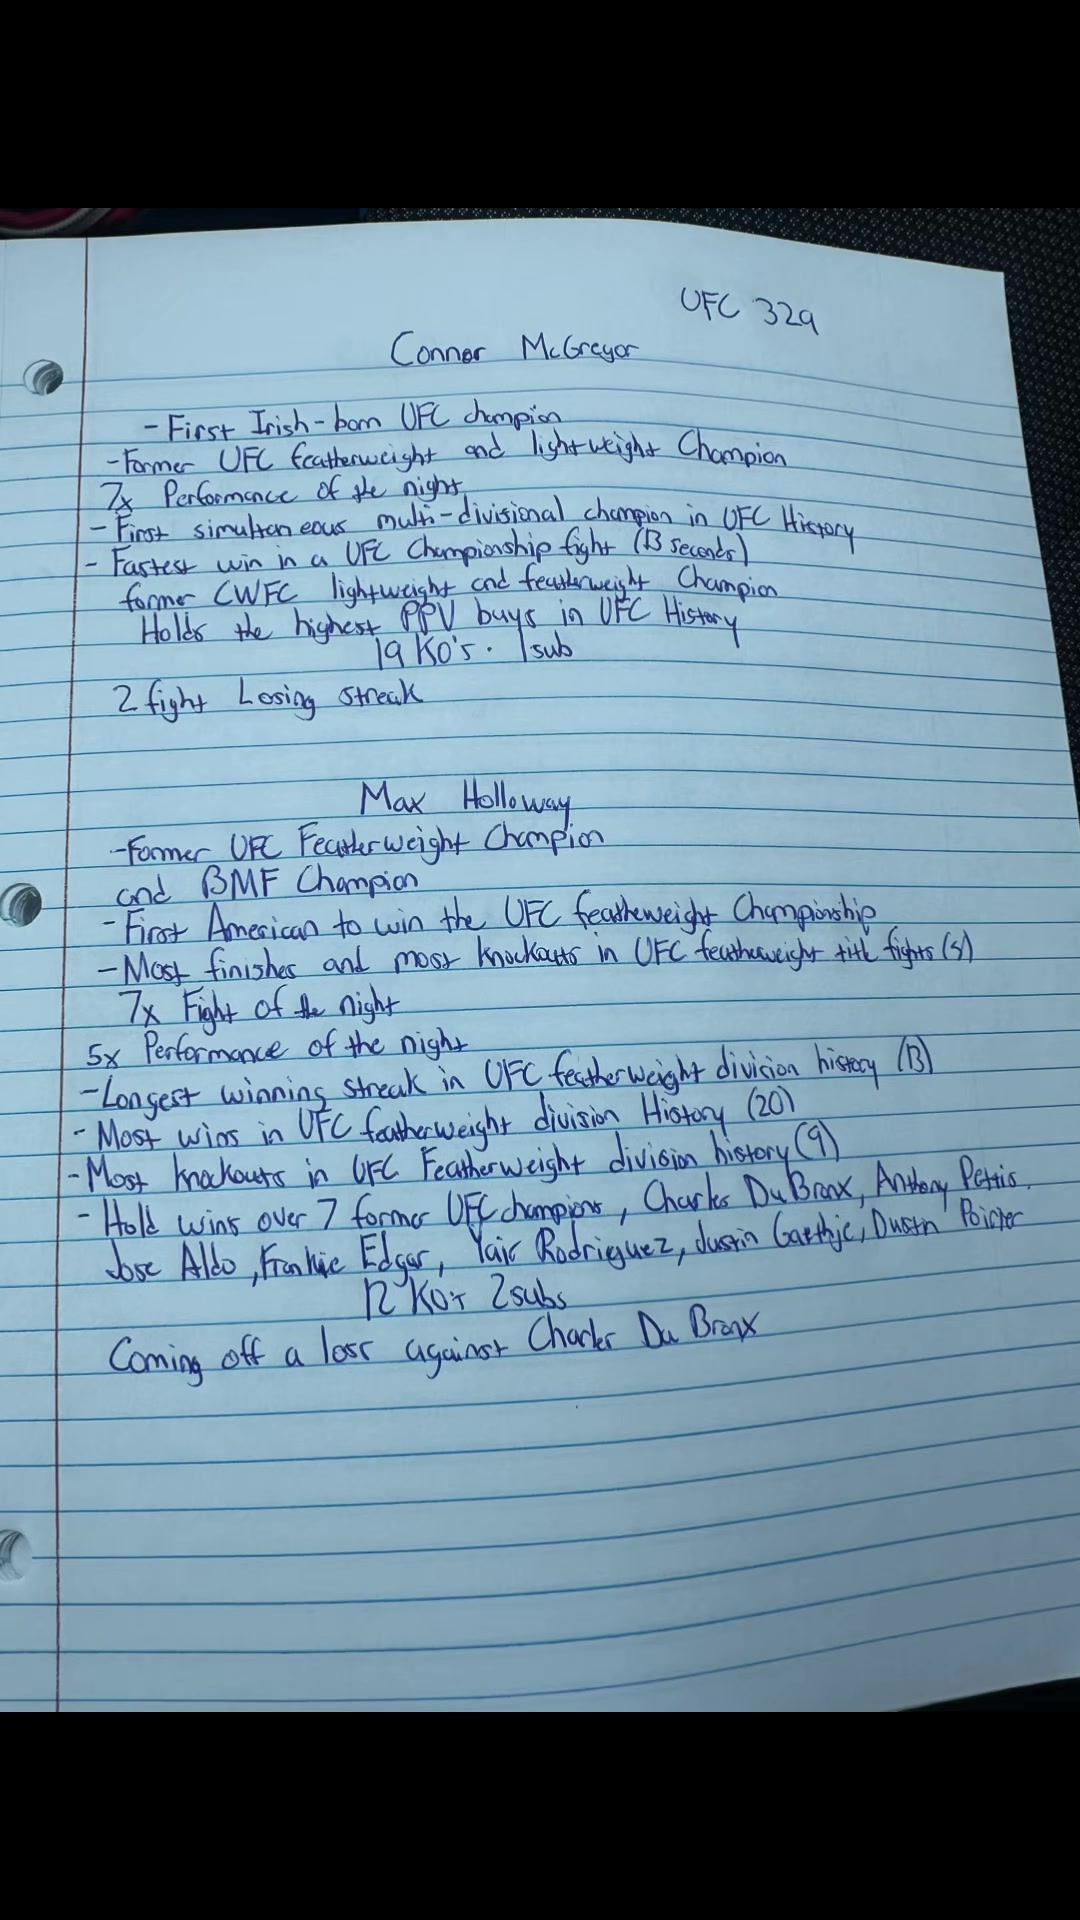 UFC 329
Connor McGregor
- First Irish-born UFC champion
- Former UFC featherweight and lightweight Champion
7x Performance of the night
- First simultaneous multi-divisional champion in UFC History
- Fastest win in a UFC Championship fight (13 seconds)
former CWFC lightweight and featherweight Champion
Holds the highest PPV buys in UFC History
19 KO's. 1 sub
2 fight Losing streak
Max Holloway
- Former UFC Featherweight Champion
and BMF Champion
- First American to win the UFC featheweight Championship
- Most finishes and most knockouts in UFC featherweight title fights (5)
7x Fight of the night
5x Performance of the night
- Longest winning streak in UFC featherweight division history (13)
- Most wins in UFC featherweight division History (20)
- Most knockouts in UFC Featherweight division history (9)
- Hold wins over 7 former UFC champions, Charles Du Bronx, Anthony Pettis.
Jose Aldo, Frankie Edgar, Yair Rodrieguez, Justin Gaethje, Dustin Poirier
12 KO's 2 subs
Coming off a loss against Charles Du Bronx